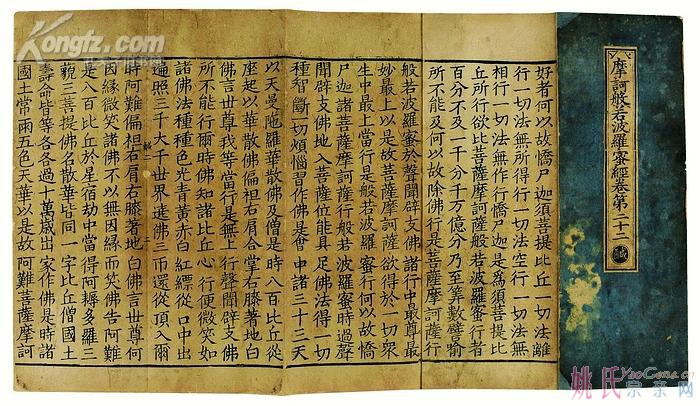 摩訶般若波羅蜜經卷第二十二
好者何以故憍尸迦須菩提比丘一切法離
行一切法無所得行一切法空行一切法無
相行一切法無作行憍尸迦是為須菩提比
丘所行欲比菩薩摩訶薩般若波羅蜜行者
百分不及一千分千万億分乃至筭數譬喻
所不能及何以故除佛行是菩薩摩訶薩行
般若波羅蜜於聲聞辟支佛諸行中最尊最
妙最上以是故菩薩摩訶薩欲得於一切衆
生中最上當行是般若波羅蜜行何以故憍
尸迦諸菩薩摩訶薩行般若波羅蜜時過聲
聞辟支佛地入菩薩位能具足佛法得一切
種智斷一切煩惱習作佛是會中諸三十三天
以天曼陁羅華散佛及僧是時八百比丘從
座起以華散佛偏袒右肩合掌右膝著地白
佛言世尊我等當行是無上行聲聞辟支佛
所不能行爾時佛知諸比丘心行便微笑如
諸佛法種種色光青黃赤白紅縹從口中出
遍照三千大千世界遶佛三帀還從頂入爾
時阿難偏袒右肩右膝著地白佛言世尊何
因緣微笑諸佛不以無因緣而笑佛告阿難
是八百比丘於星宿劫中當得阿耨多羅三
藐三菩提佛名散華皆同一字比丘僧國土
壽命皆等各各過十萬歲出家作佛是時諸
國土常雨五色天華以是故阿難菩薩摩訶
Kongfz.com
姚氏宗亲网